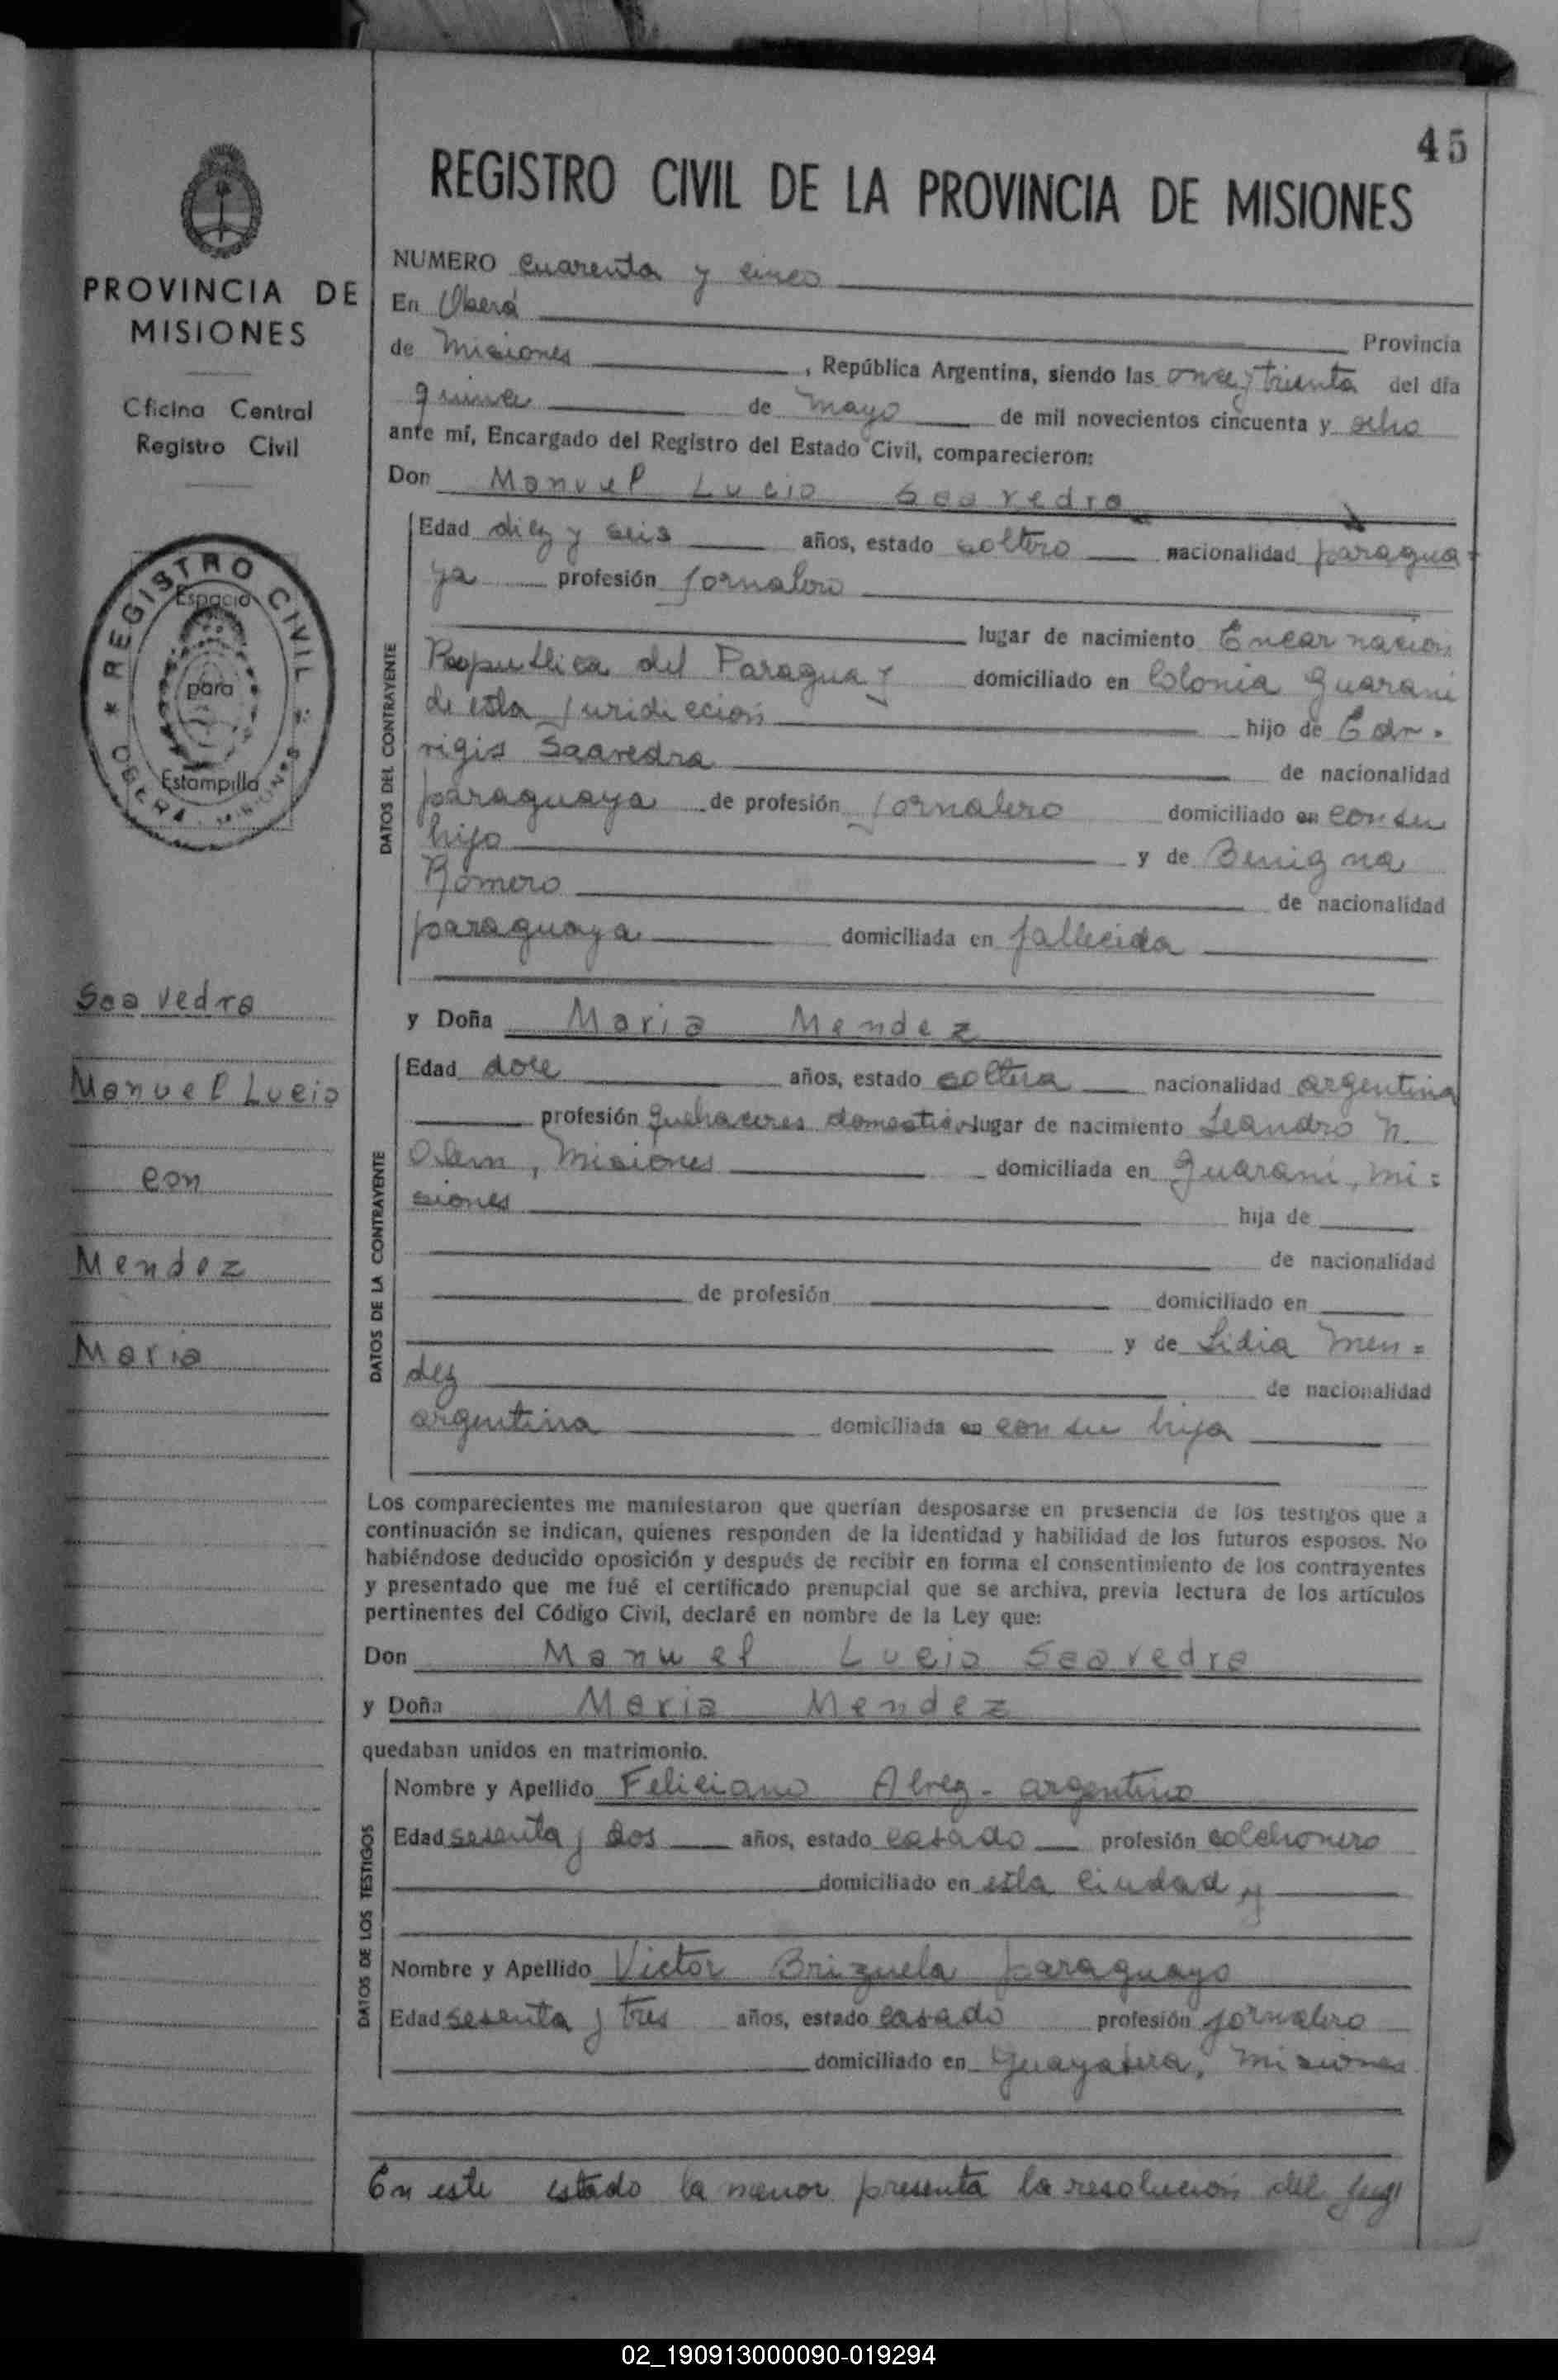 45
REGISTRO CIVIL DE LA PROVINCIA DE MISIONES
PROVINCIA DE
MISIONES
Oficina Central
Registro Civil
REGISTRO CIVIL
Espacio
para
Estampilla
OBERA MISIONES
Saavedra
Manuel Lucio
con
Mendez
Maria
NUMERO cuarenta y cinco
En Oberá Provincia
de Misiones, República Argentina, siendo las once y treinta del día
quince de Mayo de mil novecientos cincuenta y ocho
ante mí, Encargado del Registro del Estado Civil, comparecieron:
Don Manuel Lucio Saavedra
DATOS DEL CONTRAYENTE
Edad diez y seis años, estado soltero nacionalidad paragua-
ya profesión Jornalero
lugar de nacimiento Encarnación
Republica del Paraguay domiciliado en Colonia Guaraní
de esta Juridiccion hijo de
Saavedra de nacionalidad
paraguaya de profesión Jornalero domiciliado en con su
hijo y de Benigna
Romero de nacionalidad
paraguaya domiciliada en fallecida
y Doña Maria Mendez
DATOS DE LA CONTRAYENTE
Edad doce años, estado soltera nacionalidad argentina
profesión Quehaceres domesticos lugar de nacimiento Leandro N.
Alem, Misiones domiciliada en Guaraní, Mi=
siones hija de
de nacionalidad
de profesión domiciliado en
y de Lidia Men=
dez de nacionalidad
argentina domiciliada en con su hija
Los comparecientes me manifestaron que querían desposarse en presencia de los testigos que a
continuación se indican, quienes responden de la identidad y habilidad de los futuros esposos. No
habiéndose deducido oposición y después de recibir en forma el consentimiento de los contrayentes
y presentado que me fué el certificado prenupcial que se archiva, previa lectura de los artículos
pertinentes del Código Civil, declaré en nombre de la Ley que:
Don Manuel Lucio Saavedra
y Doña Maria Mendez
quedaban unidos en matrimonio.
DATOS DE LOS TESTIGOS
Nombre y Apellido Feliciano Alvez - argentino
Edad sesenta y dos años, estado casado profesión colchonero
domiciliado en esta ciudad y
Nombre y Apellido Victor Brizuela paraguayo
Edad sesenta y tres años, estado casado profesión jornalero
domiciliado en Guayabera, Misiones
En este estado la menor presenta la resolucion del
02_190913000090-019294